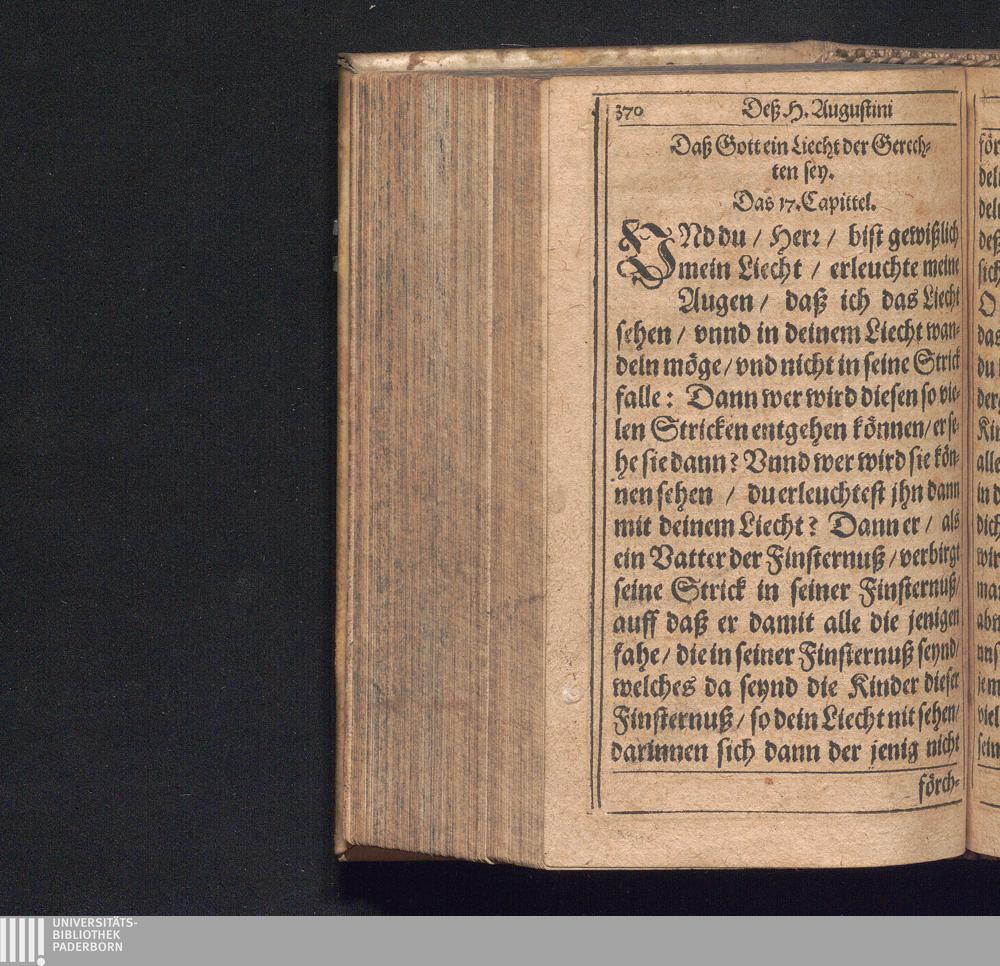 370 Deß H. Augustini
Daß Gott ein Liecht der Gerech-
ten sey.
Das 17. Capittel.
VNd du / Herr / bist gewißlich
mein Liecht / erleuchte meine
Augen / daß ich das Liecht
sehen / vnnd in deinem Liecht wan-
deln möge / vnd nicht in seine Strick
falle: Dann wer wird diesen so vie-
len Stricken entgehen können / er se-
he sie dann? Vnnd wer wird sie kön-
nen sehen / du erleuchtest jhn dann
mit deinem Liecht? Dann er / als
ein Vatter der Finsternuß / verbirgt
seine Strick in seiner Finsternuß /
auff daß er damit alle die jenigen
fahe / die in seiner Finsternuß seynd /
welches da seynd die Kinder dieser
Finsternuß / so dein Liecht nit sehen /
darinnen sich dann der jenig nicht
förch-
UNIVERSITÄTS-
BIBLIOTHEK
PADERBORN